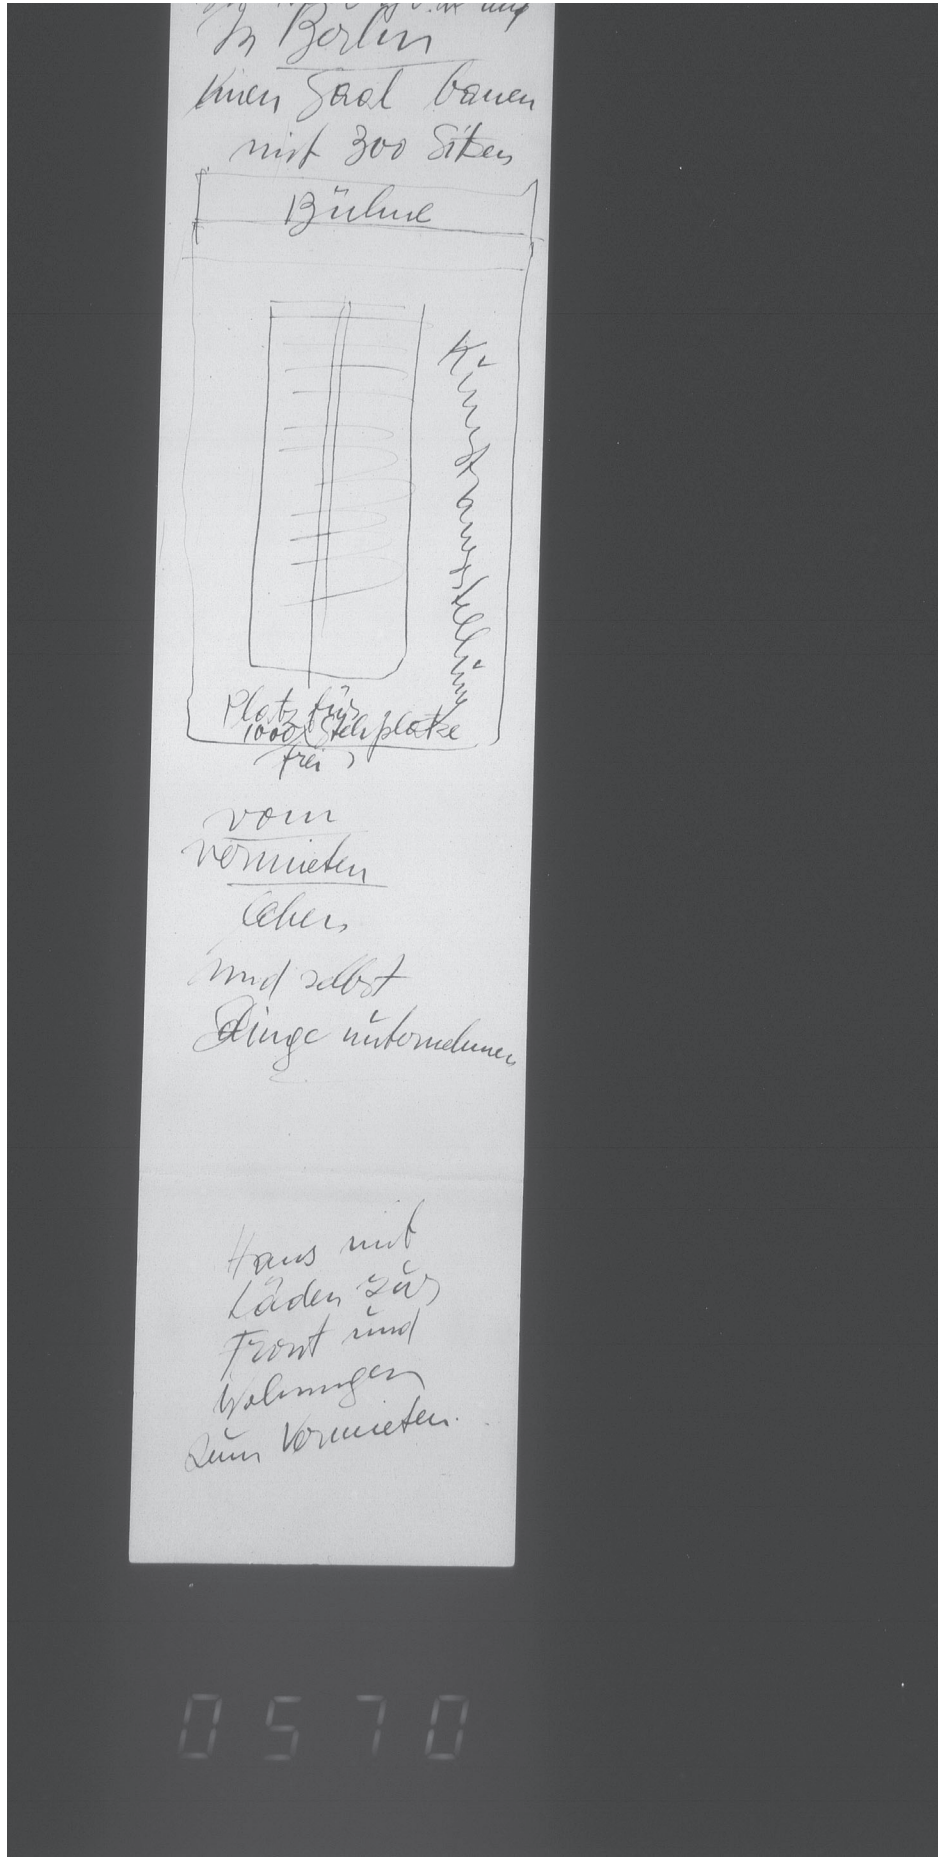 In Berlin
einen Saal bauen
mit 300 Sitzen
Bühne
Kunstausstellung
Platz für
1000 Stehplätze
frei
vom
vermieten
leben
und selbst
Dinge unternehmen
Haus mit
Läden zur
Front und
Wohnungen
zum Vermieten.
0570